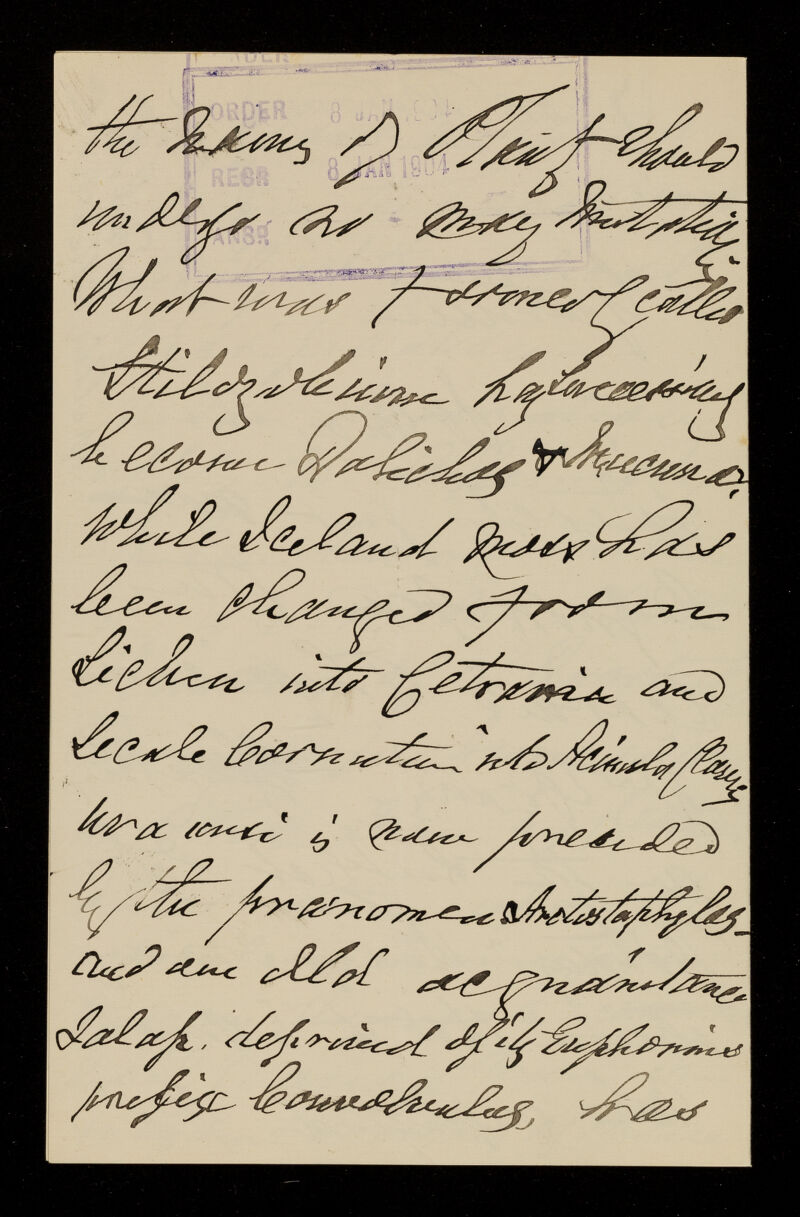 ORDER 8 JAN 1904
RESR 8 JAN 1904
ANSR
the names of Plants should
undergo so many mutations
What was formerly called
Stilozolinum has
become Dolichos & Mucuna,
while Iceland moss has
been changed from
Lichen into Cetraria and
Secale Cornutum into Acinula Clavus
uva ursi is now preceded
by the praenomen Arctostaphylos
and our old acquaintance
Jalap. deprived of its Euphonius
prefix Convolvulus, has